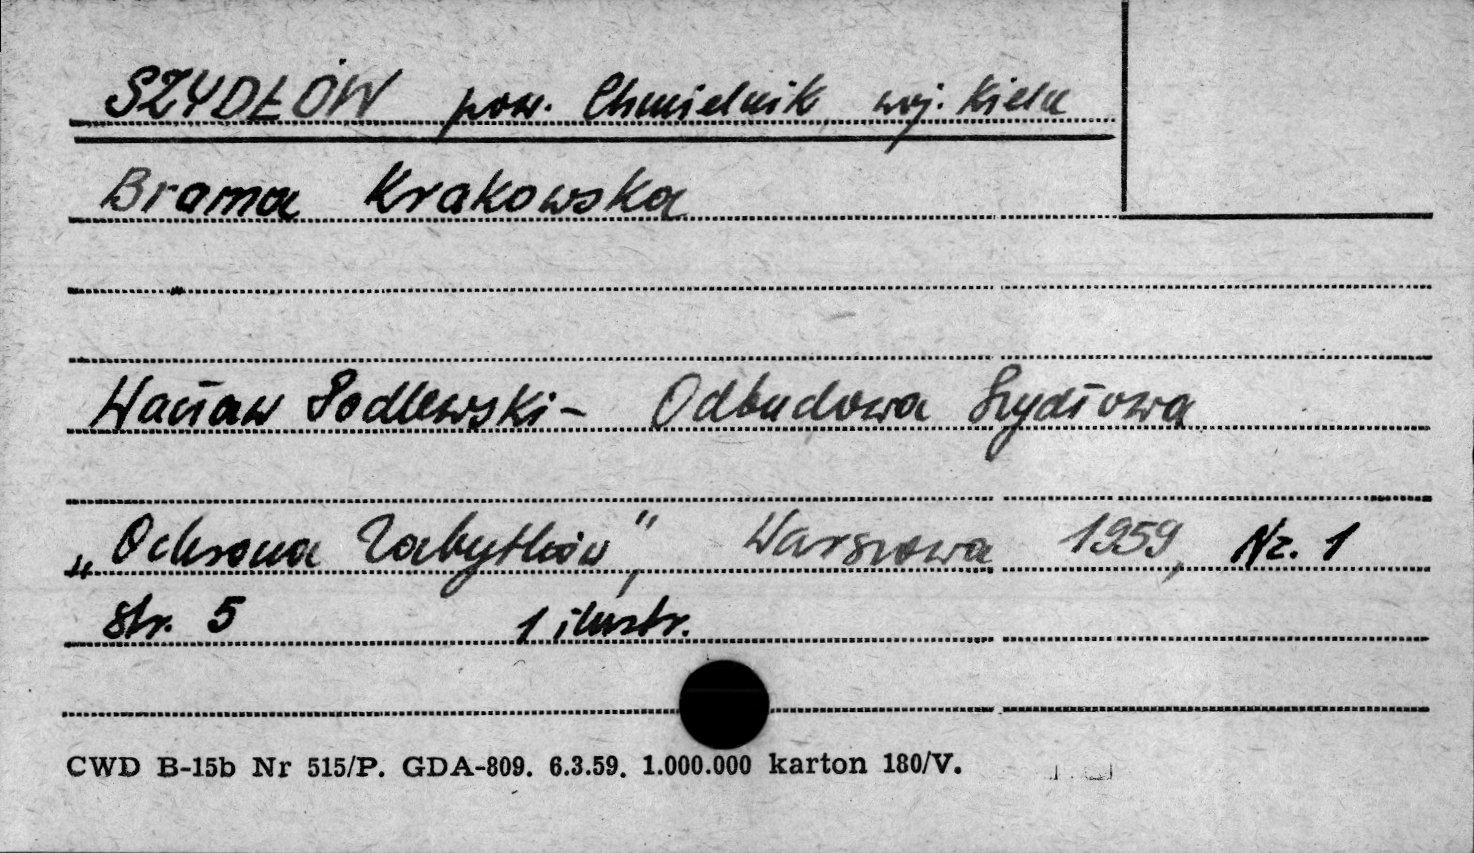 SZYDŁÓW pow. Chmielnik, woj. Kielce
Brama Krakowska
Wacław Podlewski - Odbudowa Szydłowa
„Ochrona Zabytków”, Warszawa 1959, Nr. 1
str. 5 1 ilustr.
CWD B-15b Nr 515/P. GDA-809. 6.3.59. 1.000.000 karton 180/V.